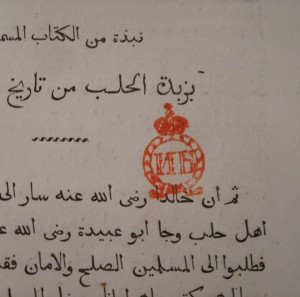 نبذة من الكتاب المسم
بزبدة الحلب من تاريخ
ИБ
ثم أن خالدا رضى الله عنه سار الى
اهل حلب وجا ابو عبيدة رضى الله ع
فطلبوا الى المسلمين الصلح والامان فق